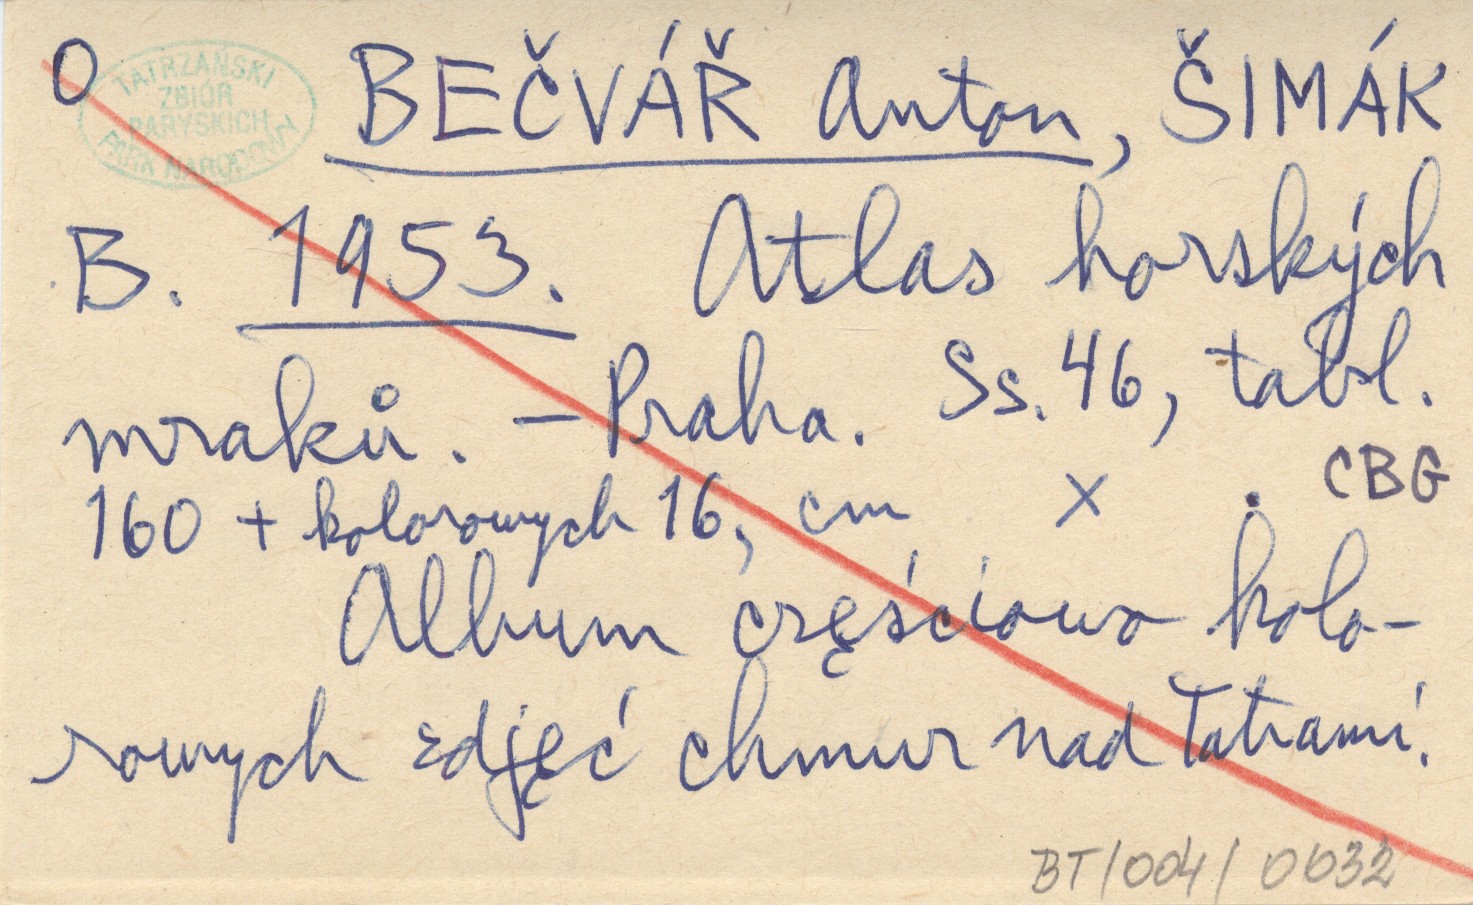 O
TATRZAŃSKI
ZBIÓR
PARYSKICH
PARK NARODOWY
BEČVÁŘ Anton, ŠIMÁK
B. 1953. Atlas horských
mraků. – Praha. Ss. 46, tabl.
160 + kolorowych 16, cm x . CBG
Album częściowo kolo-
rowych zdjęć chmur nad Tatrami.
BT/004/0032